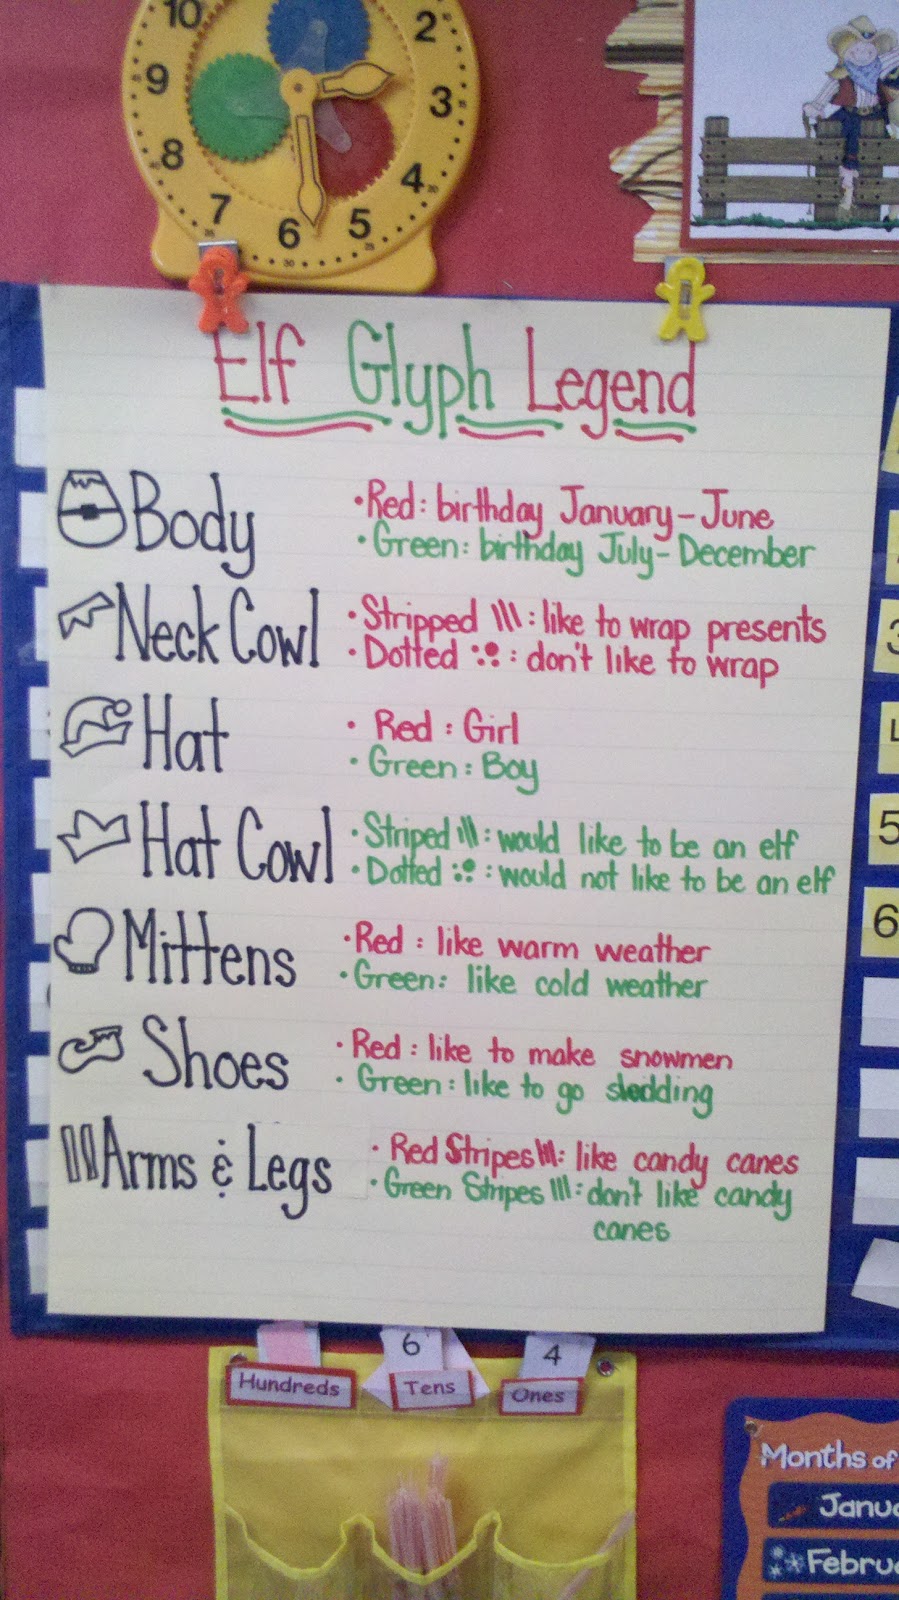 10
2
9
3
8
4
7
6
5
Elf Glyph Legend
Body
• Red: birthday January-June
• Green: birthday July-December
Neck Cowl
• Stripped \\\ : like to wrap presents
• Dotted : don't like to wrap
Hat
• Red : Girl
• Green : Boy
Hat Cowl
• Striped \\\ : would like to be an elf
• Dotted : would not like to be an elf
Mittens
• Red : like warm weather
• Green: like cold weather
Shoes
• Red : like to make snowmen
• Green : like to go sledding
Arms & Legs
• Red Stripes \\\: like candy canes
• Green Stripes \\\ : don't like candy
canes
3
5
6
6
4
Hundreds
Tens
Ones
Months of
Janu
Febru